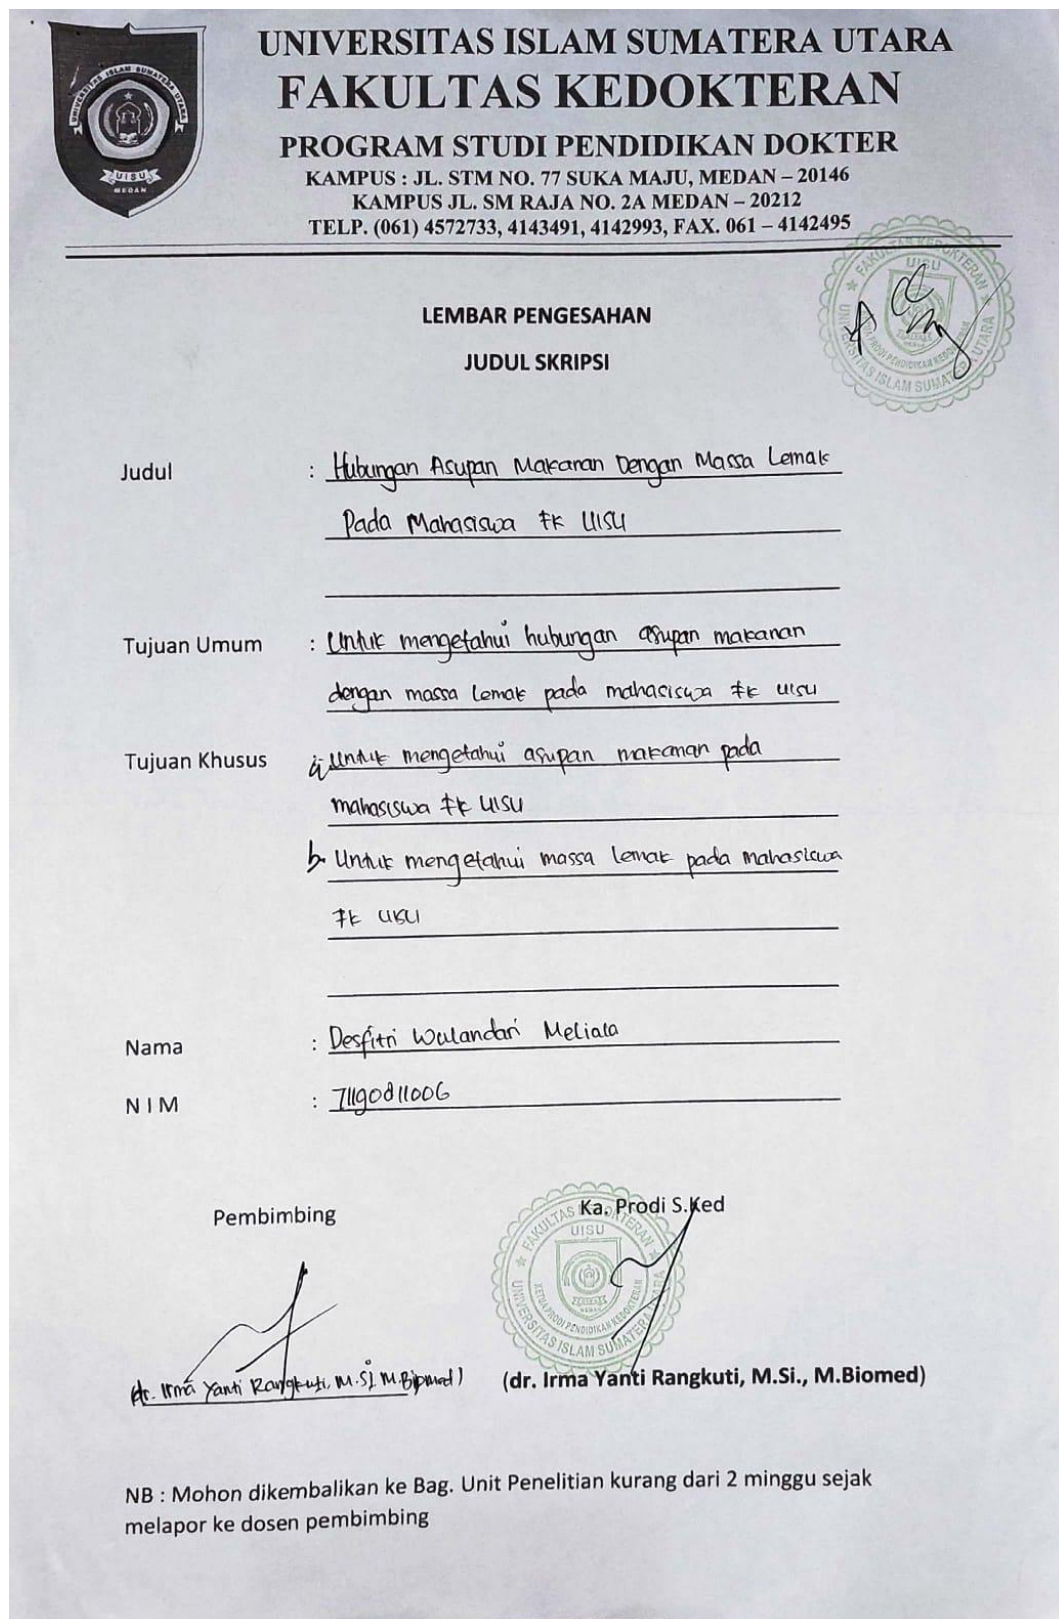 UNIVERSITAS ISLAM SUMATERA UTARA
UISU
MEDAN
UNIVERSITAS ISLAM SUMATERA UTARA
FAKULTAS KEDOKTERAN
PROGRAM STUDI PENDIDIKAN DOKTER
KAMPUS : JL. STM NO. 77 SUKA MAJU, MEDAN – 20146
KAMPUS JL. SM RAJA NO. 2A MEDAN – 20212
TELP. (061) 4572733, 4143491, 4142993, FAX. 061 – 4142495
FAKULTAS KEDOKTERAN
UISU
UNIVERSITAS ISLAM SUMATERA UTARA
LEMBAR PENGESAHAN
JUDUL SKRIPSI
Judul : Hubungan Asupan Makanan Dengan Massa Lemak
Pada Mahasiswa FK UISU
Tujuan Umum : Untuk mengetahui hubungan asupan makanan
dengan massa lemak pada mahasiswa FK UISU
Tujuan Khusus : a. Untuk mengetahui asupan makanan pada
mahasiswa FK UISU
b. Untuk mengetahui massa lemak pada mahasiswa
FK UISU
Nama : Desfitri Wulandari Meliala
N I M : 71190811006
Pembimbing
Ka. Prodi S.Ked
FAKULTAS KEDOKTERAN
UISU
KETUA PRODI PENDIDIKAN KEDOKTERAN
UNIVERSITAS ISLAM SUMATERA UTARA
(dr. Irma Yanti Rangkuti, M.Si, M.Biomed)
(dr. Irma Yanti Rangkuti, M.Si., M.Biomed)
NB : Mohon dikembalikan ke Bag. Unit Penelitian kurang dari 2 minggu sejak
melapor ke dosen pembimbing